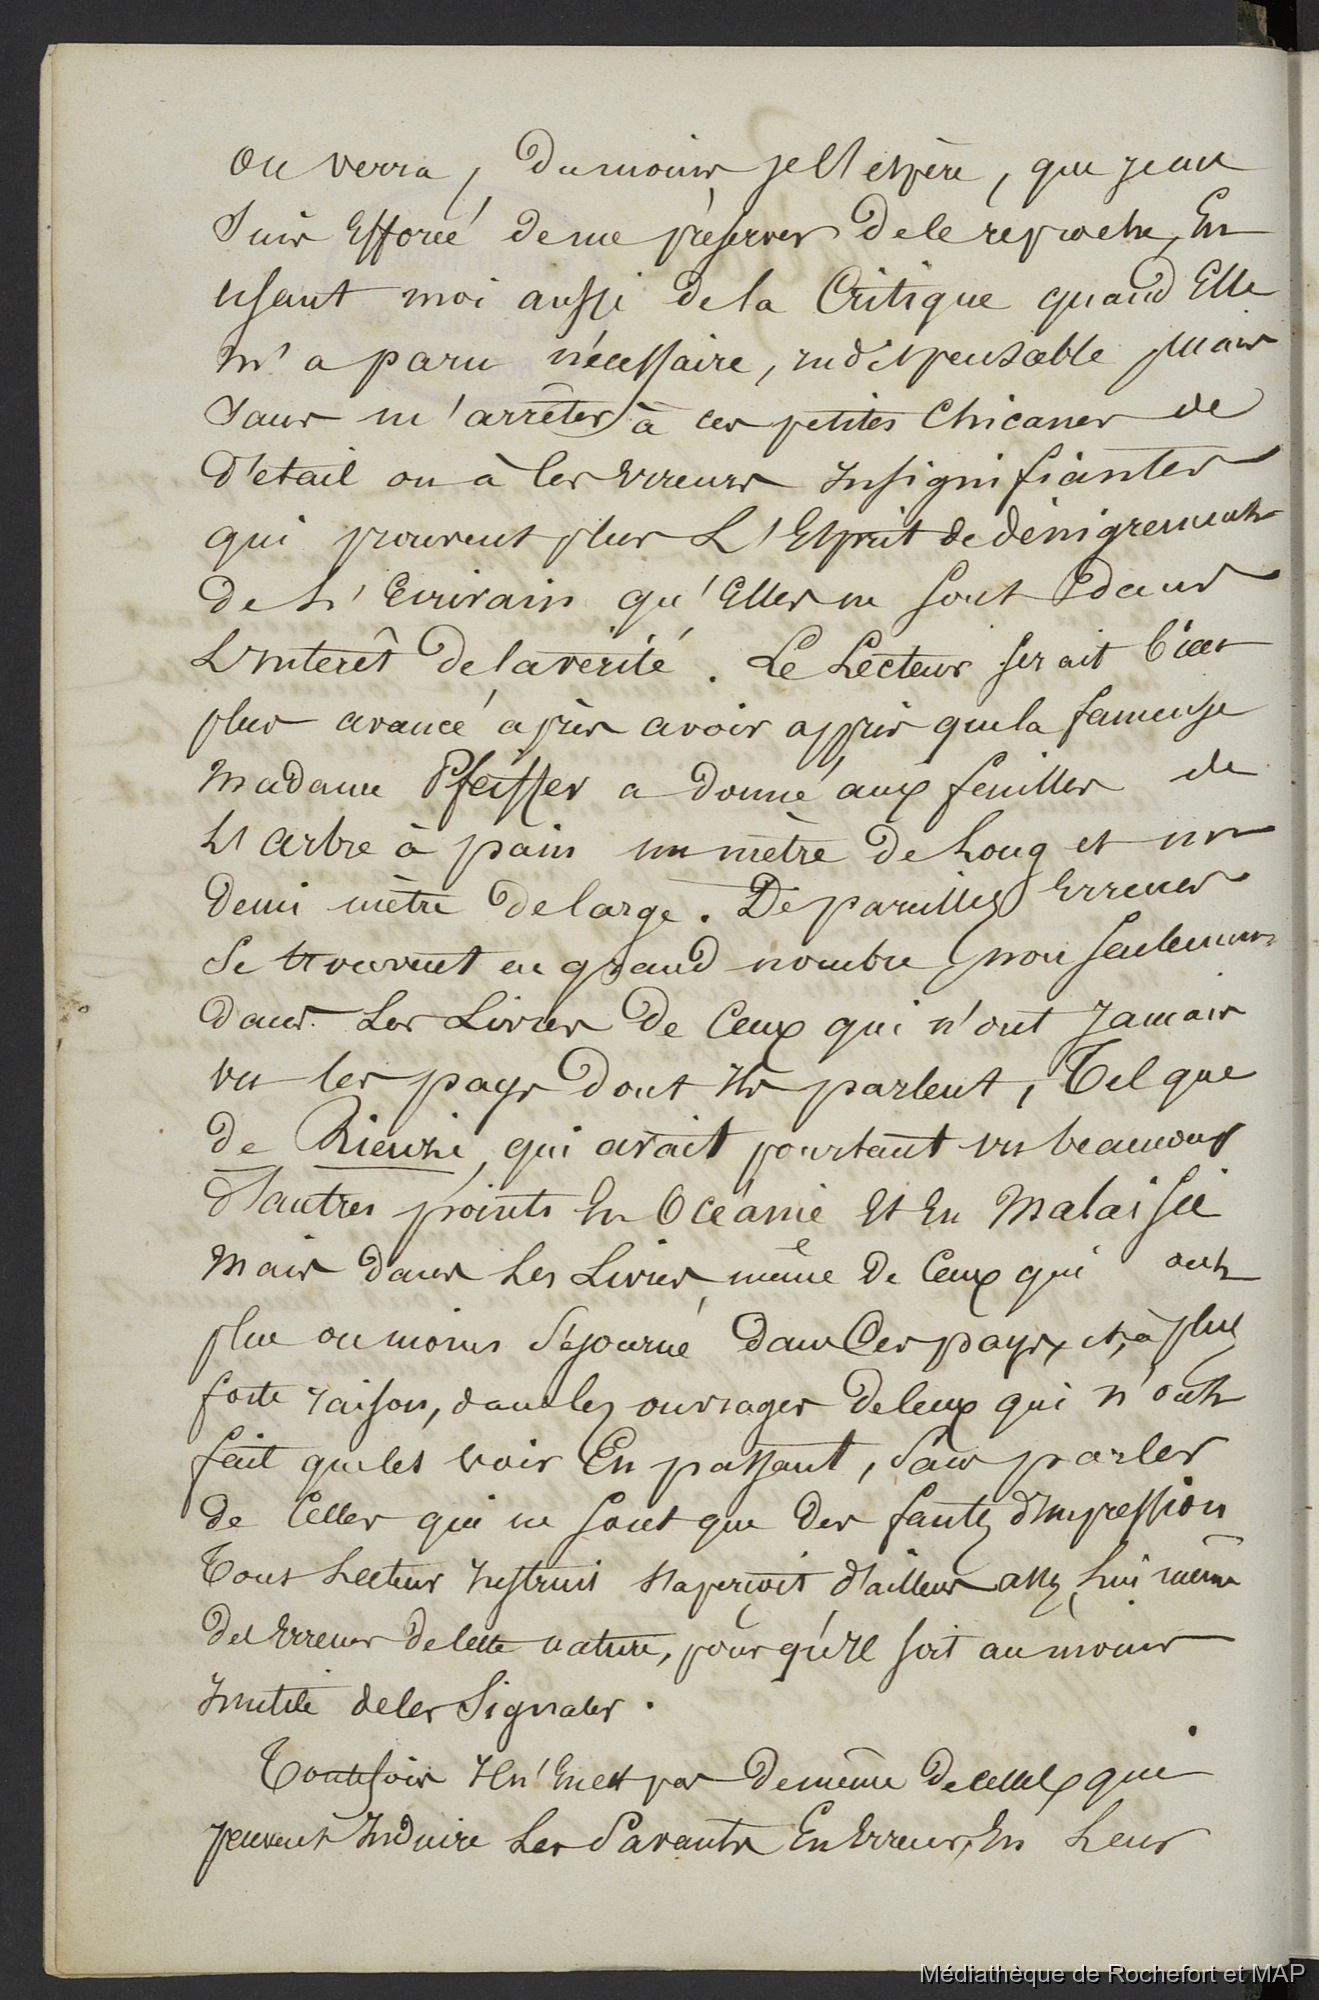 On verra, du moins je l'espère, que je me
suis Efforcé de me préserver de ce reproche, En
usant moi aussi de la Critique quand Elle
m'a paru nécessaire, indispensable, mais
sans m'arrêter à ces petites Chicanes de
d'etail ou à ces Erreurs Insignifiantes
qui prouvent plus L'Esprit de dénigrement
de L'Ecrivain qu'Elles ne sont dans
L'Interêt de la vérité. Le Lecteur serait bien
plus avancé après avoir appris que la fameuse
Madame Pfeiffer a donné aux feuilles de
L'arbre à pain un mètre de Long et un
demi mètre de large. De pareilles Erreurs
se trouvent en grand nombre, non seulement
dans Les Livres de Ceux qui n'ont Jamais
vu les pays dont Ils parlent, Tel que
de Rienzi, qui avait pourtant vu beaucoup
d'autres points En Océanie Et En Malaisie
Mais dans Les Livres, même de Ceux qui ont
plus ou moins séjourné dans Ces pays, et, à plus
forte raison, dans les ouvrages de Ceux qui n'ont
fait que les voir En passant, sans parler
de Celles qui ne sont que des fautes d'Impression
Tout Lecteur Instruit s'aperçoit d'ailleurs assez Lui même
des Erreurs de cette nature, pour qu'Il soit au moins
Inutile de les Signaler.
Toutefois Il n'En est pas de même de celles que
peuvent Induire Les Savants En Erreur, En Leur
Médiathèque de Rochefort et MAP